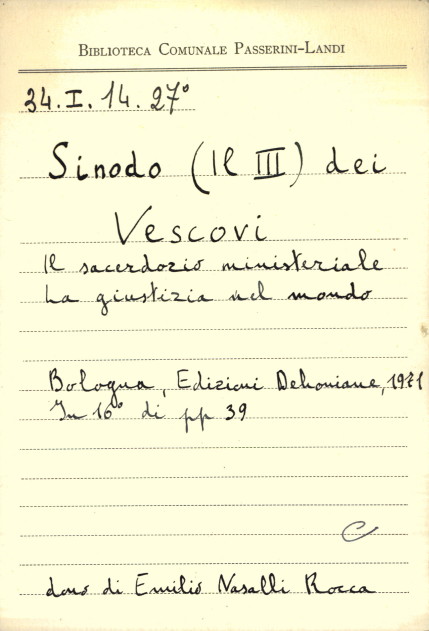 BIBLIOTECA COMUNALE PASSERINI-LANDI
34.I.14.27°
Sinodo (Il III) dei
Vescovi
Il sacerdozio ministeriale
La giustizia nel mondo
Bologna, Edizioni Dehoniane, 1971
In 16° di pp 39
C
dono di Emilio Nasalli Rocca